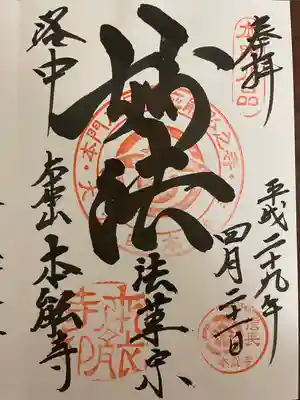 奉拝
平成二十九年
四月二十一日
妙法
法華宗
洛中
大本山 本能寺
信長